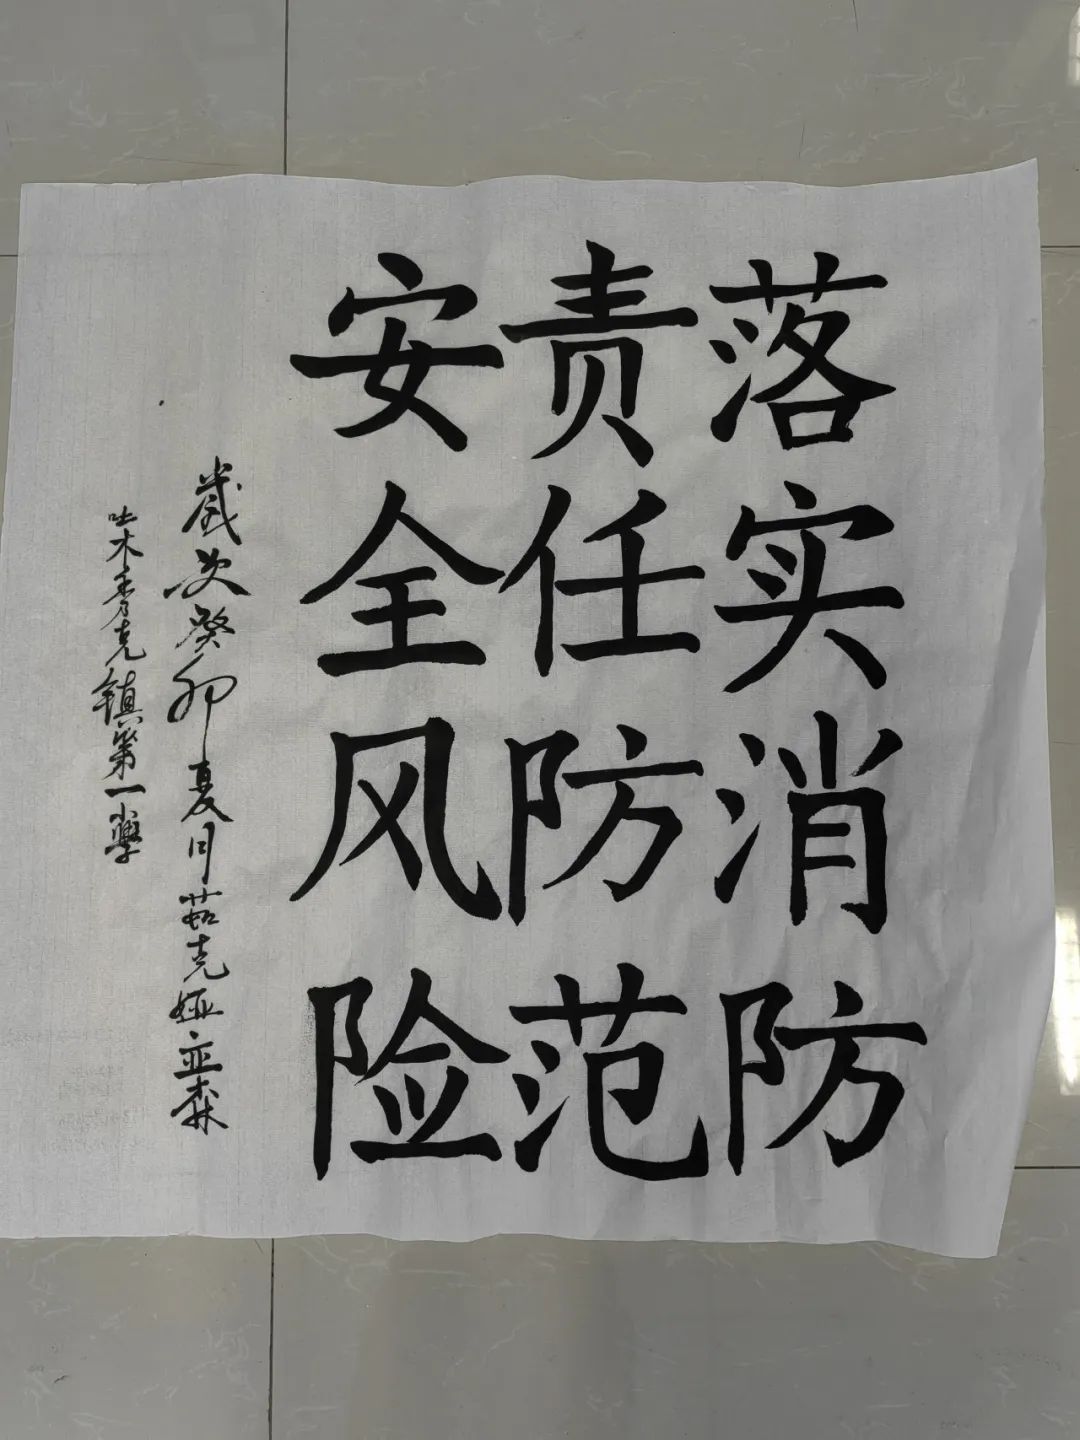 落实消防
责任防范
安全风险
歲次癸卯夏月茹克娅亚森
吐木秀克镇第一小學